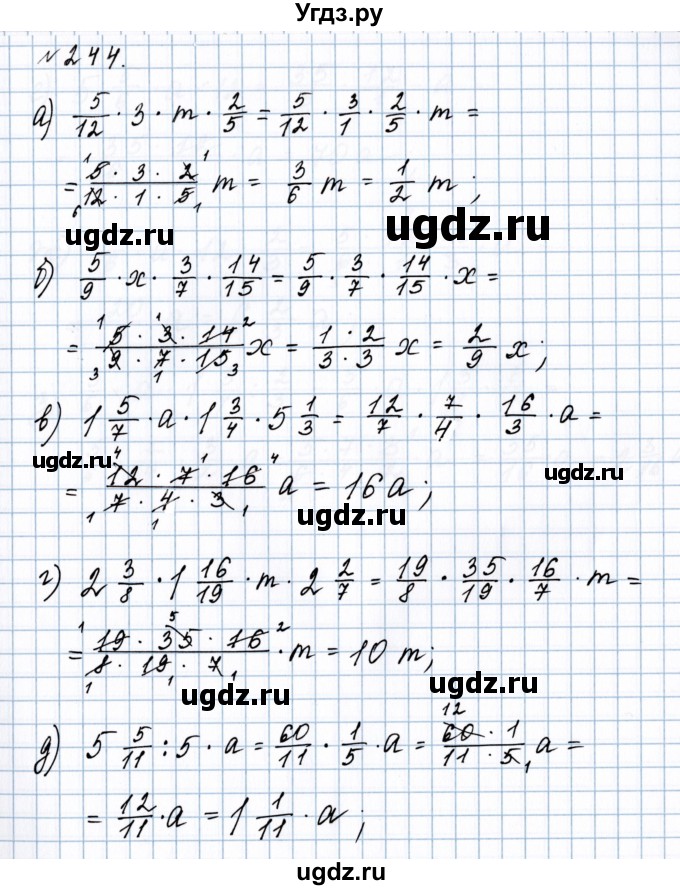 Угдз.ру
№ 244.
а) 5/12 · 3 · m · 2/5 = 5/12 · 3/1 · 2/5 · m =
= (5 · 3 · 2)/(12 · 1 · 5) m = 3/6 m = 1/2 m;
ugdz.ru ugdz.ru
б) 5/9 · x · 3/7 · 14/15 = 5/9 · 3/7 · 14/15 · x =
= (5 · 3 · 14)/(9 · 7 · 15) x = (1 · 2)/(3 · 3) x = 2/9 x;
ugdz.ru
в) 1 5/7 · a · 1 3/4 · 5 1/3 = 12/7 · 7/4 · 16/3 · a =
ugdz.ru ugdz.ru
= (12 · 7 · 16)/(7 · 4 · 3) a = 16a;
ugdz.ru
г) 2 3/8 · 1 16/19 · m · 2 2/7 = 19/8 · 35/19 · 16/7 · m =
= (19 · 35 · 16)/(8 · 19 · 7) · m = 10 m;
ugdz.ru ugdz.ru
д) 5 5/11 : 5 · a = 60/11 · 1/5 · a = (60 · 1)/(11 · 5) a =
= 12/11 · a = 1 1/11 · a;
ugdz.ru